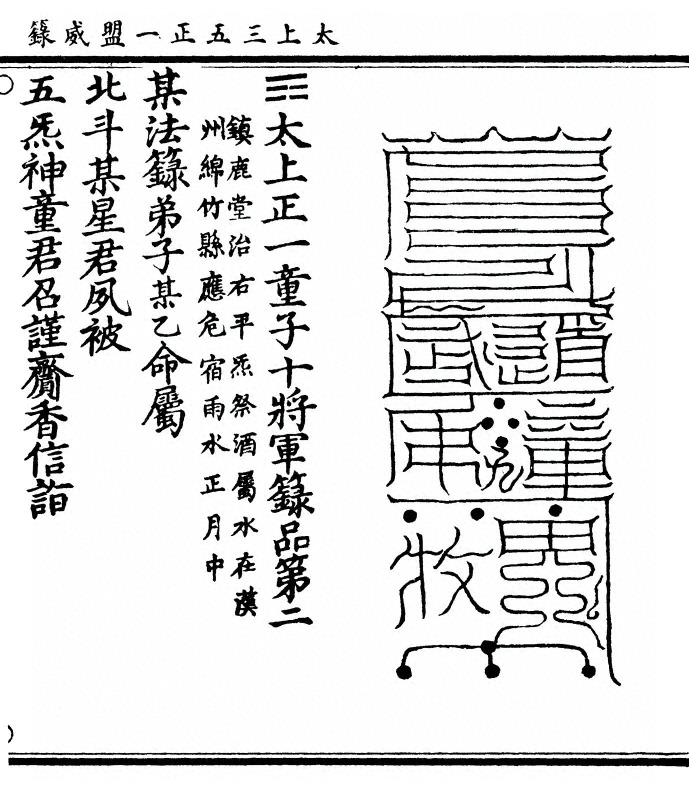 太上三五正一盟威籙
太上正一童子十將軍籙品第二
鎮鹿堂治右平炁祭酒屬水在漢
州綿竹縣應危宿雨水正月中
某法籙弟子某乙命屬
北斗某星君夙被
五炁神童君召謹齎香信詣